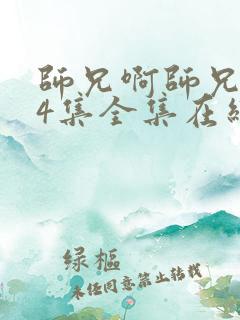 師兄啊師兄
4集全集在
绿樞
未经同意禁止转载